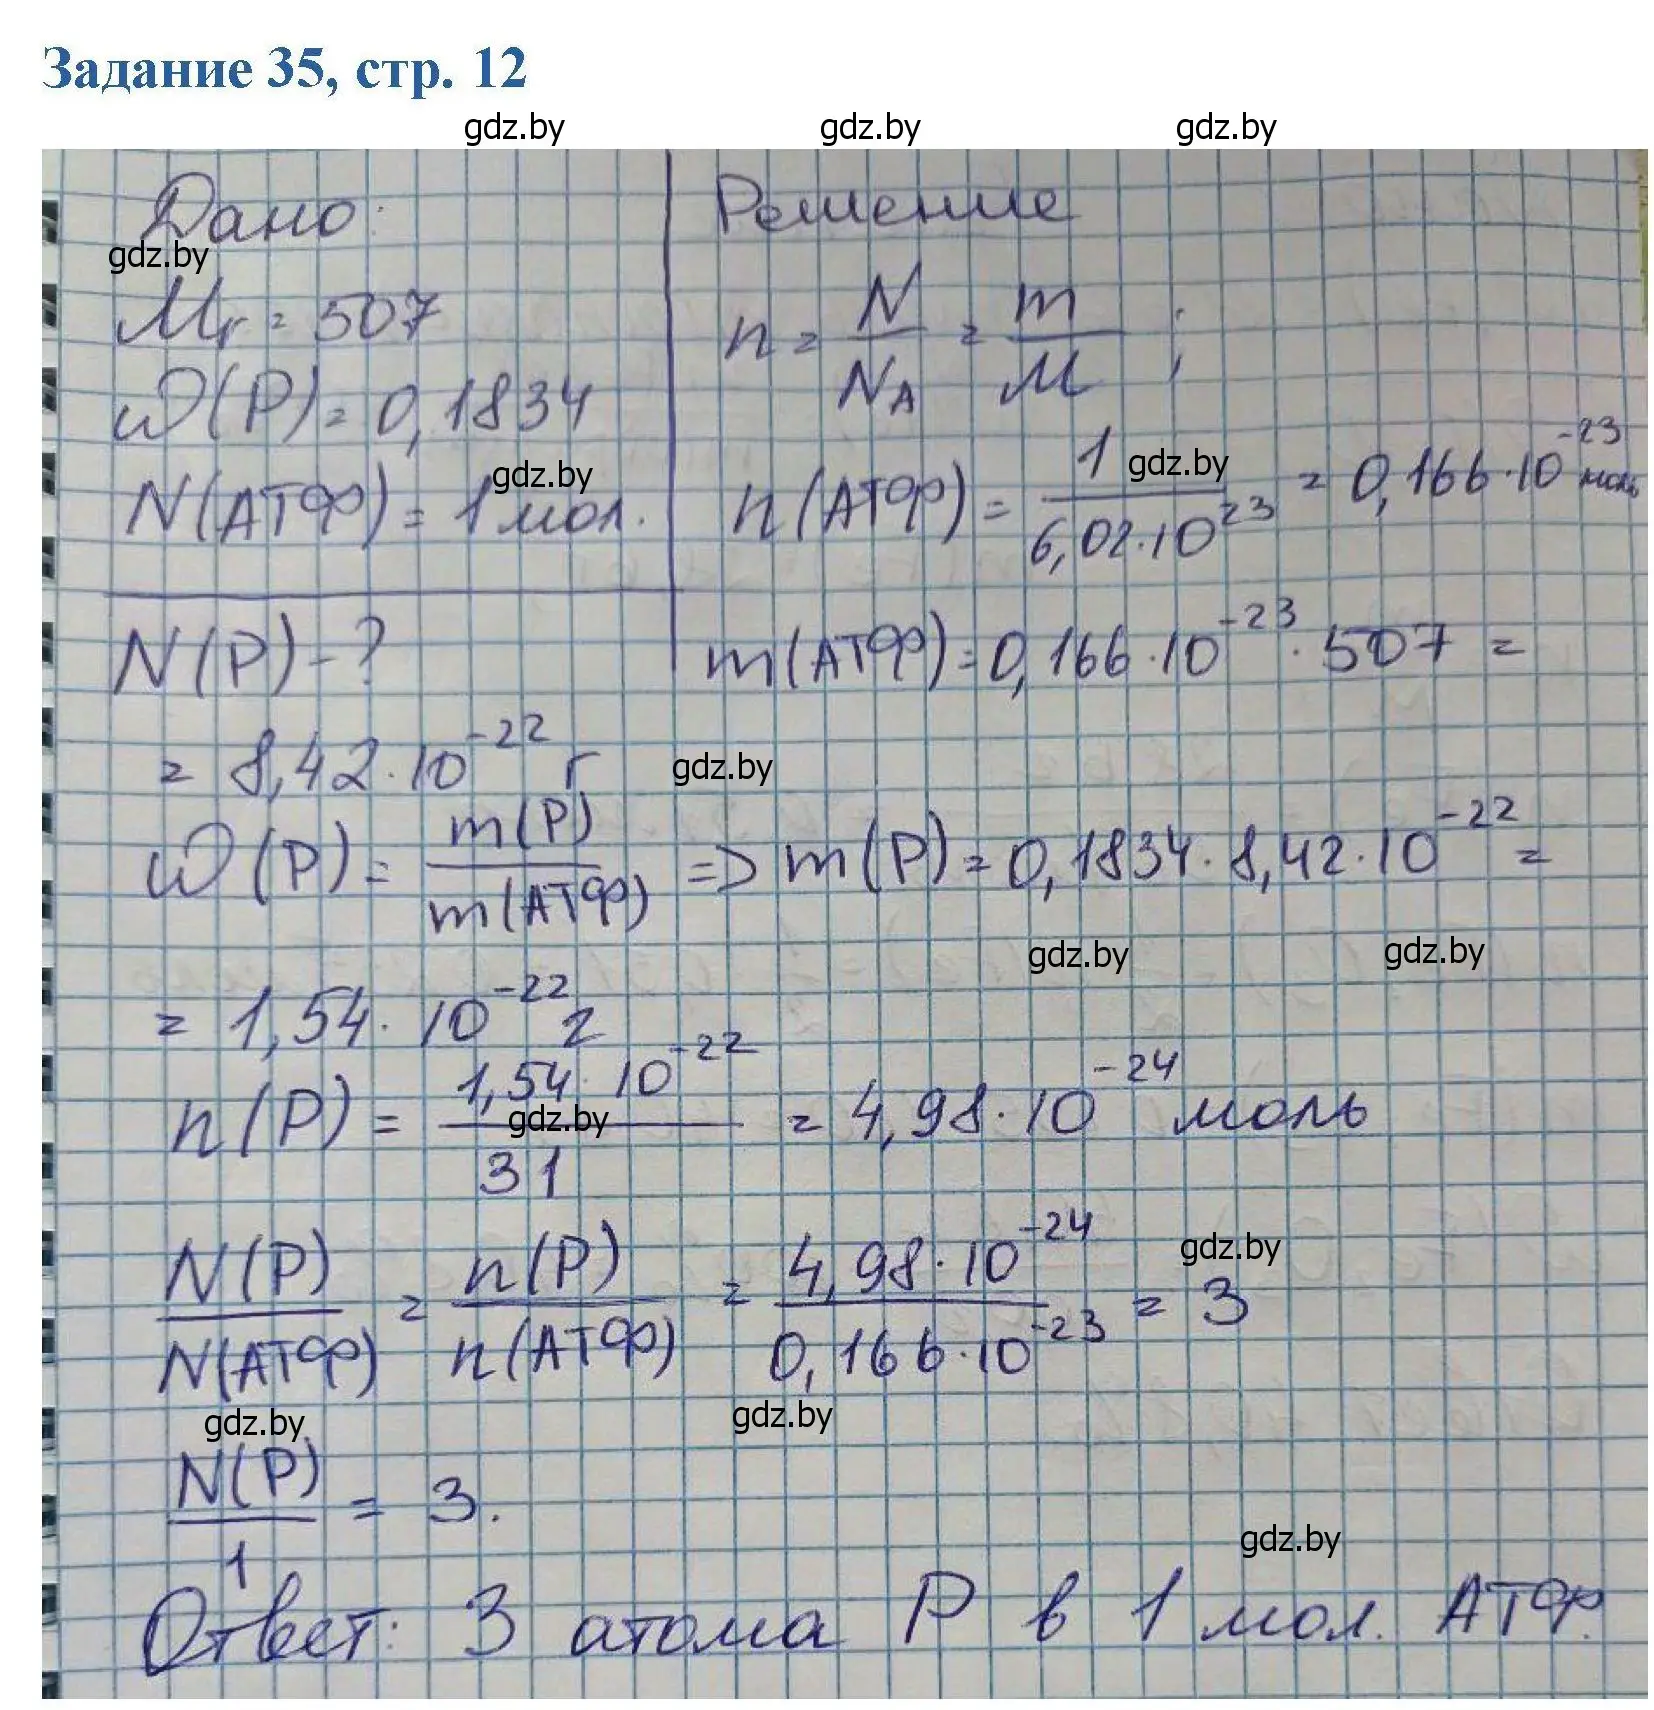 Задание 35, стр. 12
gdz.by gdz.by gdz.by
Дано:
gdz.by
Mr = 507
ω(P) = 0,1834
gdz.by
N(АТФ) = 1 мол.
N(P) - ?
Решение
n = N/N_A = m/M ;
gdz.by
n(АТФ) = 1/(6,02·10^23) = 0,166·10^-23 моль
m(АТФ) = 0,166·10^-23 · 507 =
= 8,42·10^-22 г gdz.by
ω(P) = m(P)/m(АТФ) => m(P) = 0,1834·8,42·10^-22 =
gdz.by gdz.by
= 1,54·10^-22 г
n(P) = (1,54·10^-22)/31 = 4,98·10^-24 моль
gdz.by
N(P)/N(АТФ) = n(P)/n(АТФ) = (4,98·10^-24)/(0,166·10^-23) = 3
gdz.by
gdz.by gdz.by
N(P)/1 = 3.
gdz.by
Ответ: 3 атома P в 1 мол. АТФ.